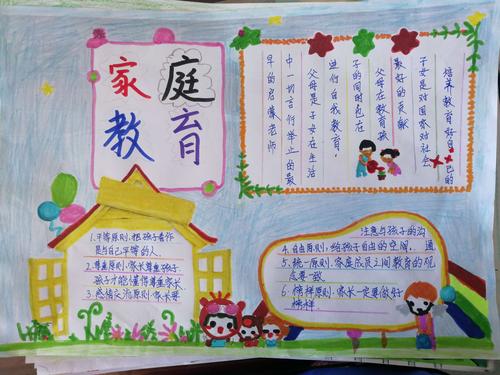 家庭
教育
培养教育好自己的
子女是对国家对社会
最好的贡献
父母在教育孩
子的同时也在
进行自我教育,
父母是子女在生活
中一切言行举止的最
早的启蒙老师
1.平等原则:把孩子看作
是与自己平等的人.
2.尊重原则:家长尊重孩子
孩子才能懂得尊重家长.
3.感情交流原则:家长要
注意与孩子的沟
通
4.自由原则:给孩子自由的空间.
5.统一原则:家庭成员之间教育的观
念要一致
6.榜样原则:家长一定要做好
榜样